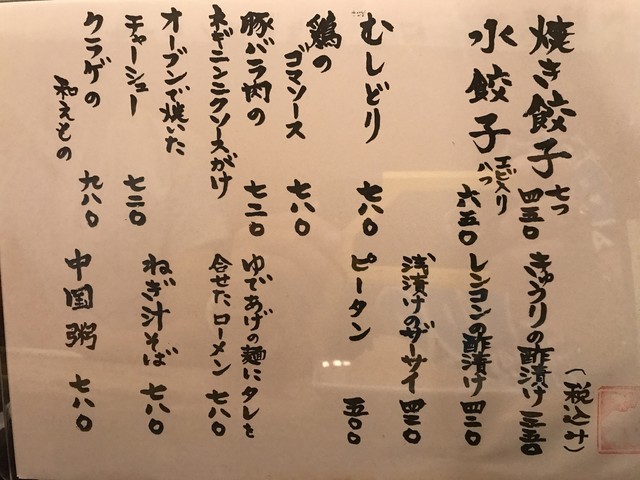 焼き餃子 七つ 四五〇
水餃子 エビ入り 八つ 六五〇
むしどり 七八〇
鶏の
ゴマソース 七八〇
豚バラ肉の
ネギニンニクソースがけ 七二〇
オーブンで焼いた
チャーシュー 七二〇
クラゲの
和えもの 九八〇
(税込み)
きゅうりの酢漬け 三五〇
レンコンの酢漬け 四二〇
浅漬けのザーサイ 四二〇
ピータン 五〇〇
ゆであげの麺にタレを
合せたローメン 七八〇
ねぎ汁そば 七八〇
中国粥 七八〇